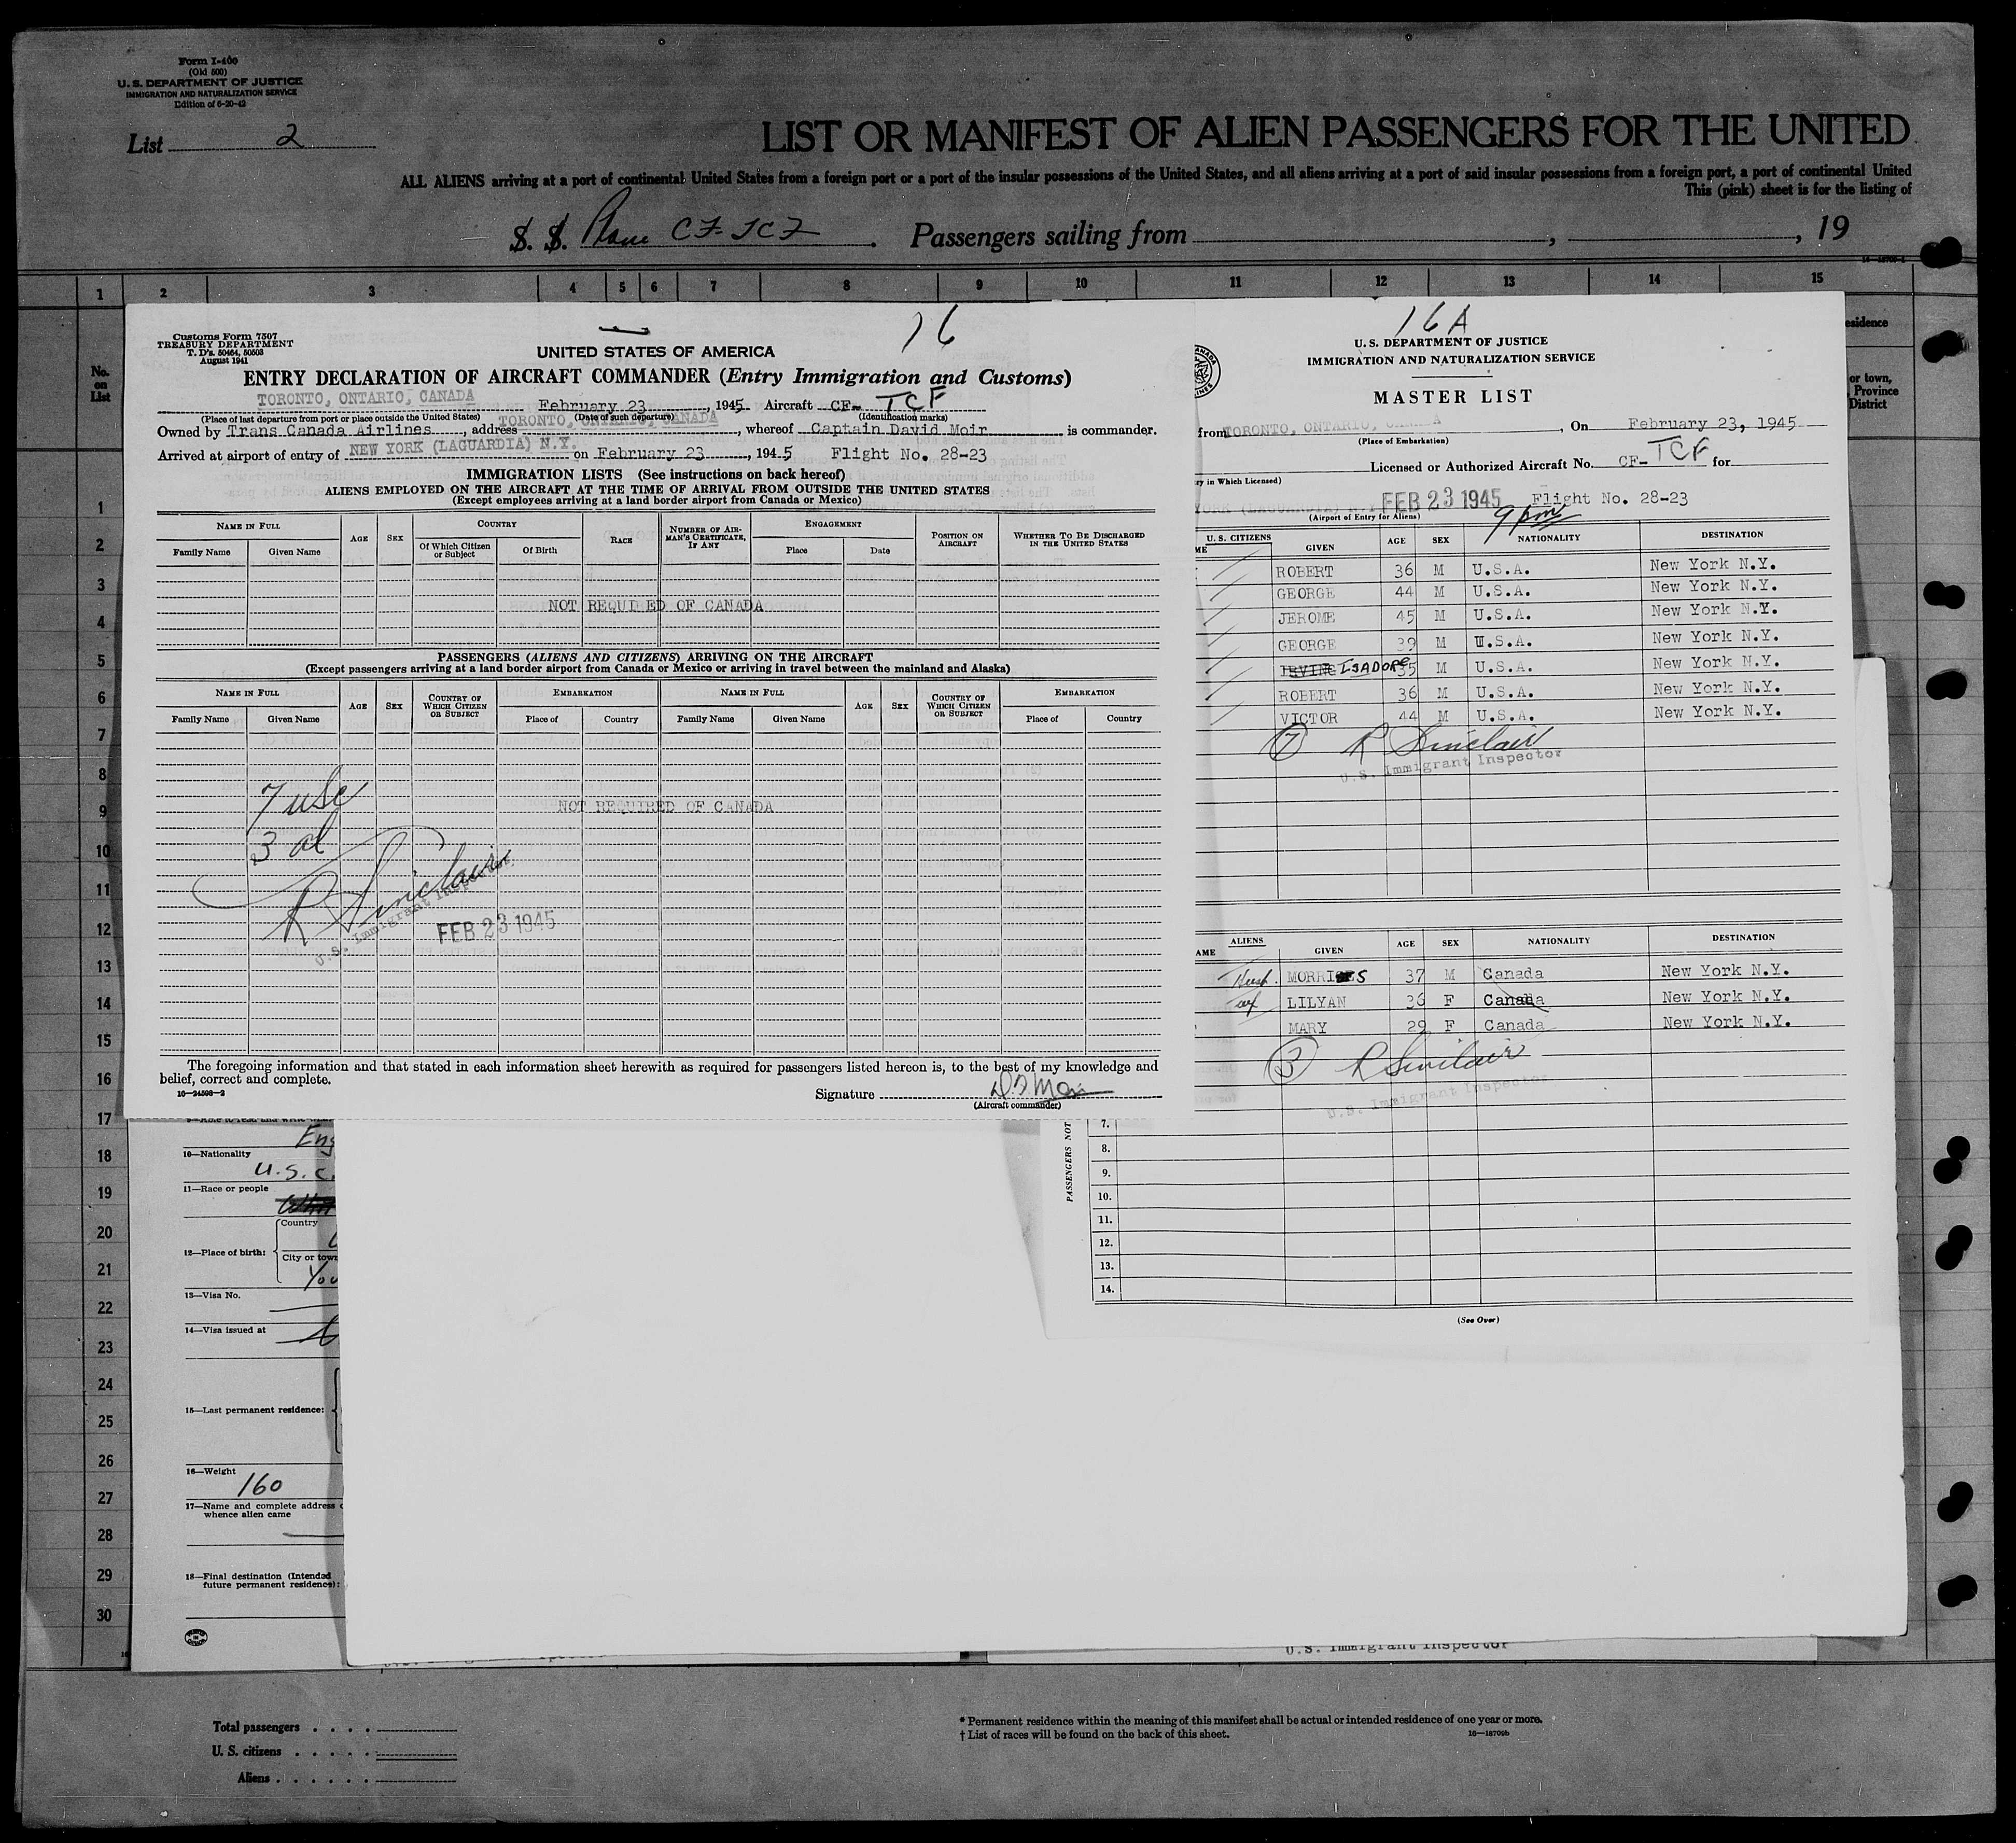 Form I-400
(Old 500)
U. S. DEPARTMENT OF JUSTICE
IMMIGRATION AND NATURALIZATION SERVICE
Edition of 6-20-42
List 2
LIST OR MANIFEST OF ALIEN PASSENGERS FOR THE UNITED
ALL ALIENS arriving at a port of continental United States from a foreign port or a port of the insular possessions of the United States, and all aliens arriving at a port of said insular possessions from a foreign port, a port of continental United
This (pink) sheet is for the listing of
S. S. Plane CF-TCF . Passengers sailing from , , 19
1 2 3 4 5 6 7 8 9 10 11 12 13 14 15
No. on List
esidence
or town,
Province
District
Customs Form 7507
TREASURY DEPARTMENT
T. D's. 50464, 50503
August 1941
16
UNITED STATES OF AMERICA
ENTRY DECLARATION OF AIRCRAFT COMMANDER (Entry Immigration and Customs)
TORONTO, ONTARIO, CANADA February 23, 1945 Aircraft CF- TCF
(Place of last departure from port or place outside the United States) (Date of such departure) (Identification marks)
Owned by Trans Canada Airlines, address TORONTO, ONTARIO, CANADA, whereof Captain David Moir is commander.
Arrived at airport of entry of NEW YORK (LAGUARDIA) N.Y. on February 23, 1945 Flight No. 28-23
IMMIGRATION LISTS (See instructions on back hereof)
ALIENS EMPLOYED ON THE AIRCRAFT AT THE TIME OF ARRIVAL FROM OUTSIDE THE UNITED STATES
(Except employees arriving at a land border airport from Canada or Mexico)
NAME IN FULL AGE SEX COUNTRY RACE NUMBER OF AIRMAN'S CERTIFICATE, IF ANY ENGAGEMENT POSITION ON AIRCRAFT WHETHER TO BE DISCHARGED IN THE UNITED STATES
Family Name Given Name Of Which Citizen or Subject Of Birth Place Date
NOT REQUIRED OF CANADA
PASSENGERS (ALIENS AND CITIZENS) ARRIVING ON THE AIRCRAFT
(Except passengers arriving at a land border airport from Canada or Mexico or arriving in travel between the mainland and Alaska)
NAME IN FULL AGE SEX COUNTRY OF WHICH CITIZEN OR SUBJECT EMBARKATION NAME IN FULL AGE SEX COUNTRY OF WHICH CITIZEN OR SUBJECT EMBARKATION
Family Name Given Name Place of Country Family Name Given Name Place of Country
7 USC
NOT REQUIRED OF CANADA
3 al
R Sinclair
U.S. Immigrant Inspector
FEB 23 1945
The foregoing information and that stated in each information sheet herewith as required for passengers listed hereon is, to the best of my knowledge and
belief, correct and complete.
16—24598-2
Signature
(Aircraft commander)
16A
U. S. DEPARTMENT OF JUSTICE
IMMIGRATION AND NATURALIZATION SERVICE
MASTER LIST
from TORONTO, ONTARIO, CA A, On February 23, 1945
(Place of Embarkation)
Licensed or Authorized Aircraft No. CF- TCF for
ry in Which Licensed)
YORK (LAGUARDIA) N. FEB 23 1945 Flight No. 28-23
(Airport of Entry for Aliens) 9 pm
U. S. CITIZENS
ME GIVEN AGE SEX NATIONALITY DESTINATION
ROBERT 36 M U.S.A. New York N.Y.
GEORGE 44 M U.S.A. New York N.Y.
JEROME 45 M U.S.A. New York N.Y.
GEORGE 39 M U.S.A. New York N.Y.
IRVING ISADORE 35 M U.S.A. New York N.Y.
ROBERT 36 M U.S.A. New York N.Y.
VICTOR 44 M U.S.A. New York N.Y.
7 R Sinclair
U.S. Immigrant Inspector
ALIENS
AME GIVEN AGE SEX NATIONALITY DESTINATION
Husb. MORRIS 37 M Canada New York N.Y.
wf LILYAN 36 F Canada New York N.Y.
MARY 29 F Canada New York N.Y.
3 R Sinclair
U.S. Immigrant Inspector
PASSENGERS NOT
7.
8.
9.
10.
11.
12.
13.
14.
(See Over)
1
2
3
4
5
6
7
8
9
10
11
12
13
14
15
16
17
18
19
20
21
22
23
24
25
26
27
28
29
30
Eng
10—Nationality
U.S.C.
11—Race or people
12—Place of birth:
Country
City or town
You
13—Visa No.
14—Visa issued at
15—Last permanent residence:
16—Weight
160
17—Name and complete address
whence alien came
18—Final destination (Intended
future permanent residence):
U.S. Immigrant Inspector
Total passengers . . . .
U. S. citizens . . . . .
Aliens . . . . . .
* Permanent residence within the meaning of this manifest shall be actual or intended residence of one year or more.
† List of races will be found on the back of this sheet.
16—18709b